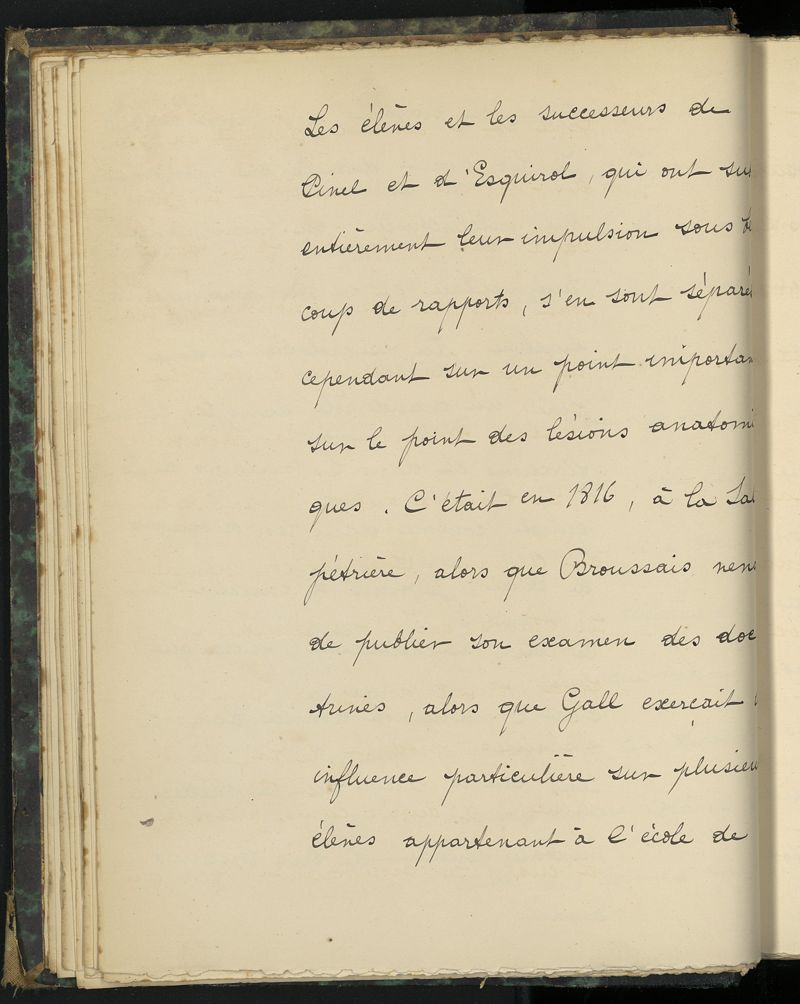 Les élèves et les successeurs de
Pinel et d'Esquirol, qui ont
entièrement leur impulsion sous
coup de rapports, s'en sont séparé
cependant sur un point importan
sur le point des lésions anatomi
ques. C'était en 1816, à la Sal
pétrière, alors que Broussais
de publier son examen des doc
trines, alors que Gall exerçait
influence particulière sur plusieu
élèves appartenant à l'école de